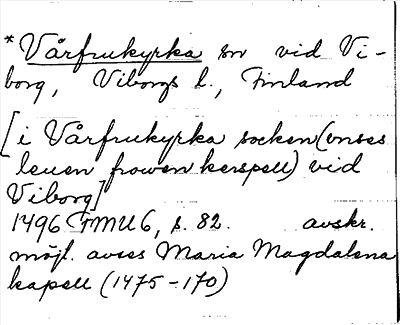 * Vårfrukyrka sn vid Vi-
borg, Viborgs l., Finland
[i Vårfrukyrka socken (vnses
leuen frowen kerspell) vid
Viborg]
1496 FMU 6, s. 82. avskr.
möjl. avses Maria Magdalena
kapell (1475-170)